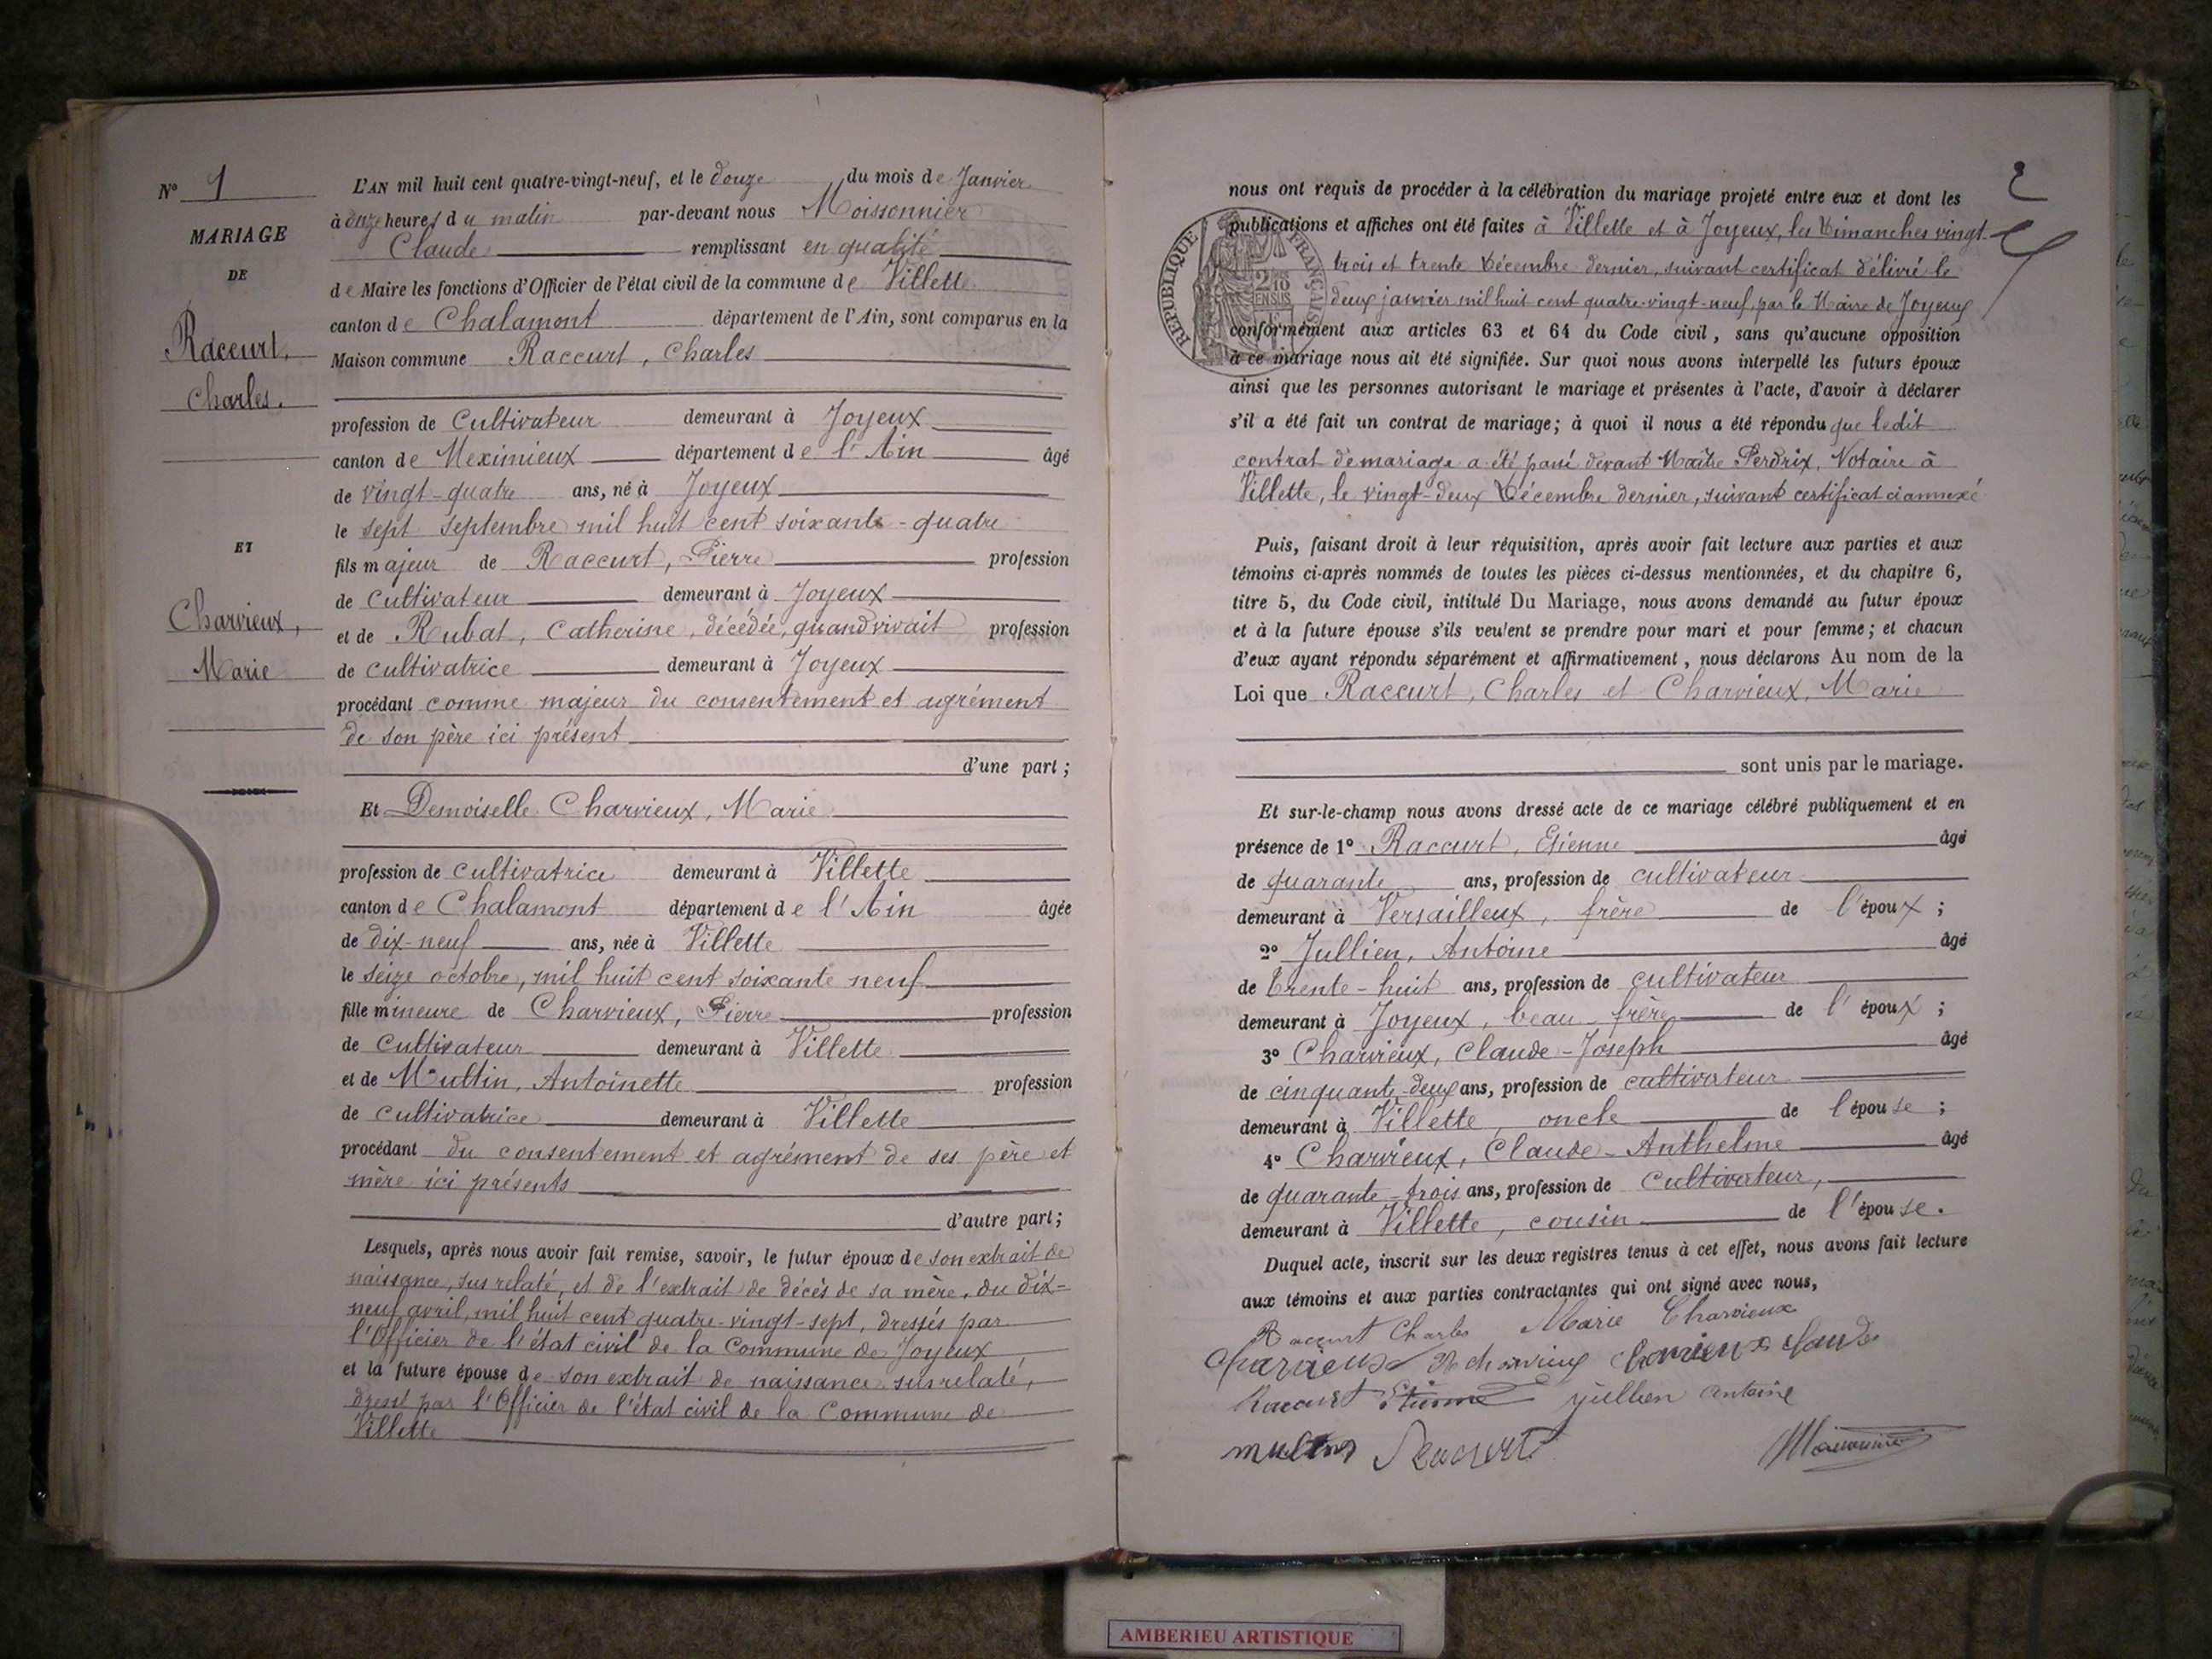 N° 1
MARIAGE
DE
Raccurt,
Charles.
ET
Charvieux,
Marie
L'AN mil huit cent quatre-vingt-neuf, et le douze du mois de Janvier
à onze heures du matin par-devant nous Moissonnier
Claude remplissant en qualité
de Maire les fonctions d'Officier de l'état civil de la commune de Villette
canton de Chalamont département de l'Ain, sont comparus en la
Maison commune Raccurt, Charles
profession de Cultivateur demeurant à Joyeux
canton de Meximieux département de l'Ain âgé
de vingt-quatre ans, né à Joyeux
le sept septembre mil huit cent soixante-quatre
fils majeur de Raccurt, Pierre profession
de Cultivateur demeurant à Joyeux
et de Rubat, Catherine, décédée, quand vivait profession
de cultivatrice demeurant à Joyeux
procédant comme majeur du consentement et agrément
de son père ici présent
d'une part;
Et Demoiselle Charvieux, Marie
profession de cultivatrice demeurant à Villette
canton de Chalamont département de l'Ain âgée
de dix-neuf ans, née à Villette
le seize octobre, mil huit cent soixante neuf
fille mineure de Charvieux, Pierre profession
de Cultivateur demeurant à Villette
et de Multin, Antoinette profession
de cultivatrice demeurant à Villette
procédant du consentement et agrément de ses père et
mère ici présents
d'autre part;
Lesquels, après nous avoir fait remise, savoir, le futur époux de son extrait de
naissance, sus relaté, et de l'extrait de décès de sa mère, du dix-
neuf avril, mil huit cent quatre-vingt-sept, dressés par
l'Officier de l'état civil de la Commune de Joyeux
et la future épouse de son extrait de naissance susrelaté,
dressé par l'Officier de l'état civil de la Commune de
Villette
2
nous ont requis de procéder à la célébration du mariage projeté entre eux et dont les
publications et affiches ont été faites à Villette et à Joyeux, les Dimanches vingt-
trois et trente Décembre dernier, suivant certificat délivré le
deux janvier mil huit cent quatre-vingt-neuf, par le Maire de Joyeux
conformément aux articles 63 et 64 du Code civil, sans qu'aucune opposition
à ce mariage nous ait été signifiée. Sur quoi nous avons interpellé les futurs époux
ainsi que les personnes autorisant le mariage et présentes à l'acte, d'avoir à déclarer
s'il a été fait un contrat de mariage; à quoi il nous a été répondu que ledit
contrat de mariage a été passé devant Maître Perdrix, Notaire à
Villette, le vingt-deux Décembre dernier, suivant certificat ci annexé
Puis, faisant droit à leur réquisition, après avoir fait lecture aux parties et aux
témoins ci-après nommés de toutes les pièces ci-dessus mentionnées, et du chapitre 6,
titre 5, du Code civil, intitulé Du Mariage, nous avons demandé au futur époux
et à la future épouse s'ils veulent se prendre pour mari et pour femme; et chacun
d'eux ayant répondu séparément et affirmativement, nous déclarons Au nom de la
Loi que Raccurt, Charles et Charvieux, Marie
sont unis par le mariage.
Et sur-le-champ nous avons dressé acte de ce mariage célébré publiquement et en
présence de 1° Raccurt, Etienne âgé
de quarante ans, profession de cultivateur
demeurant à Versailleux, frère de l'époux;
2° Jullien, Antoine âgé
de trente-huit ans, profession de cultivateur
demeurant à Joyeux, beau-frère de l'époux;
3° Charvieux, Claude-Joseph âgé
de cinquante-deux ans, profession de cultivateur
demeurant à Villette, oncle de l'épouse;
4° Charvieux, Claude-Anthelme âgé
de quarante-trois ans, profession de Cultivateur,
demeurant à Villette, cousin de l'épouse.
Duquel acte, inscrit sur les deux registres tenus à cet effet, nous avons fait lecture
aux témoins et aux parties contractantes qui ont signé avec nous,
Raccurt Charles Marie Charvieux
Charvieux Charvieux Claude
Raccurt Etienne jullien antoine
Raccurt Moissonnier
RÉPUBLIQUE FRANÇAISE
2/10 EN SUS
AMBERIEU ARTISTIQUE